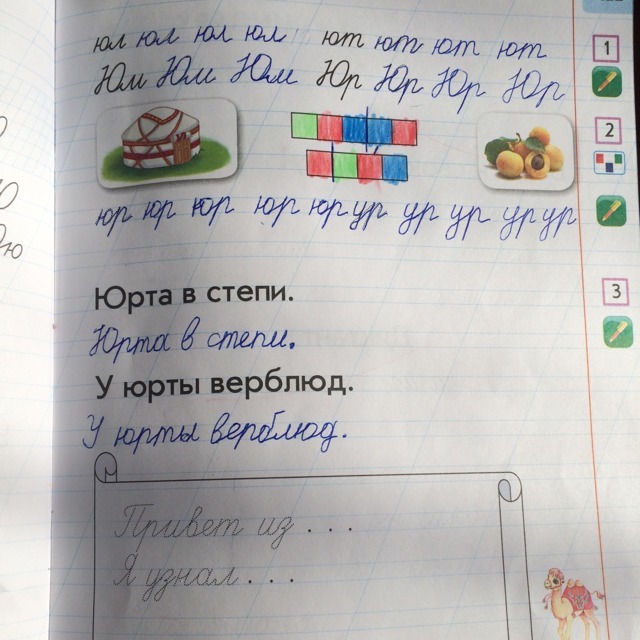 юл юл юл юл ют ют ют ют
1
Юм Юм Юм Юр Юр Юр Юр
2
юр юр юр юр юр ур ур ур ур ур
Юрта в степи.
3
Юрта в степи.
У юрты верблюд.
У юрты верблюд.
Привет из ...
Я узнал ...